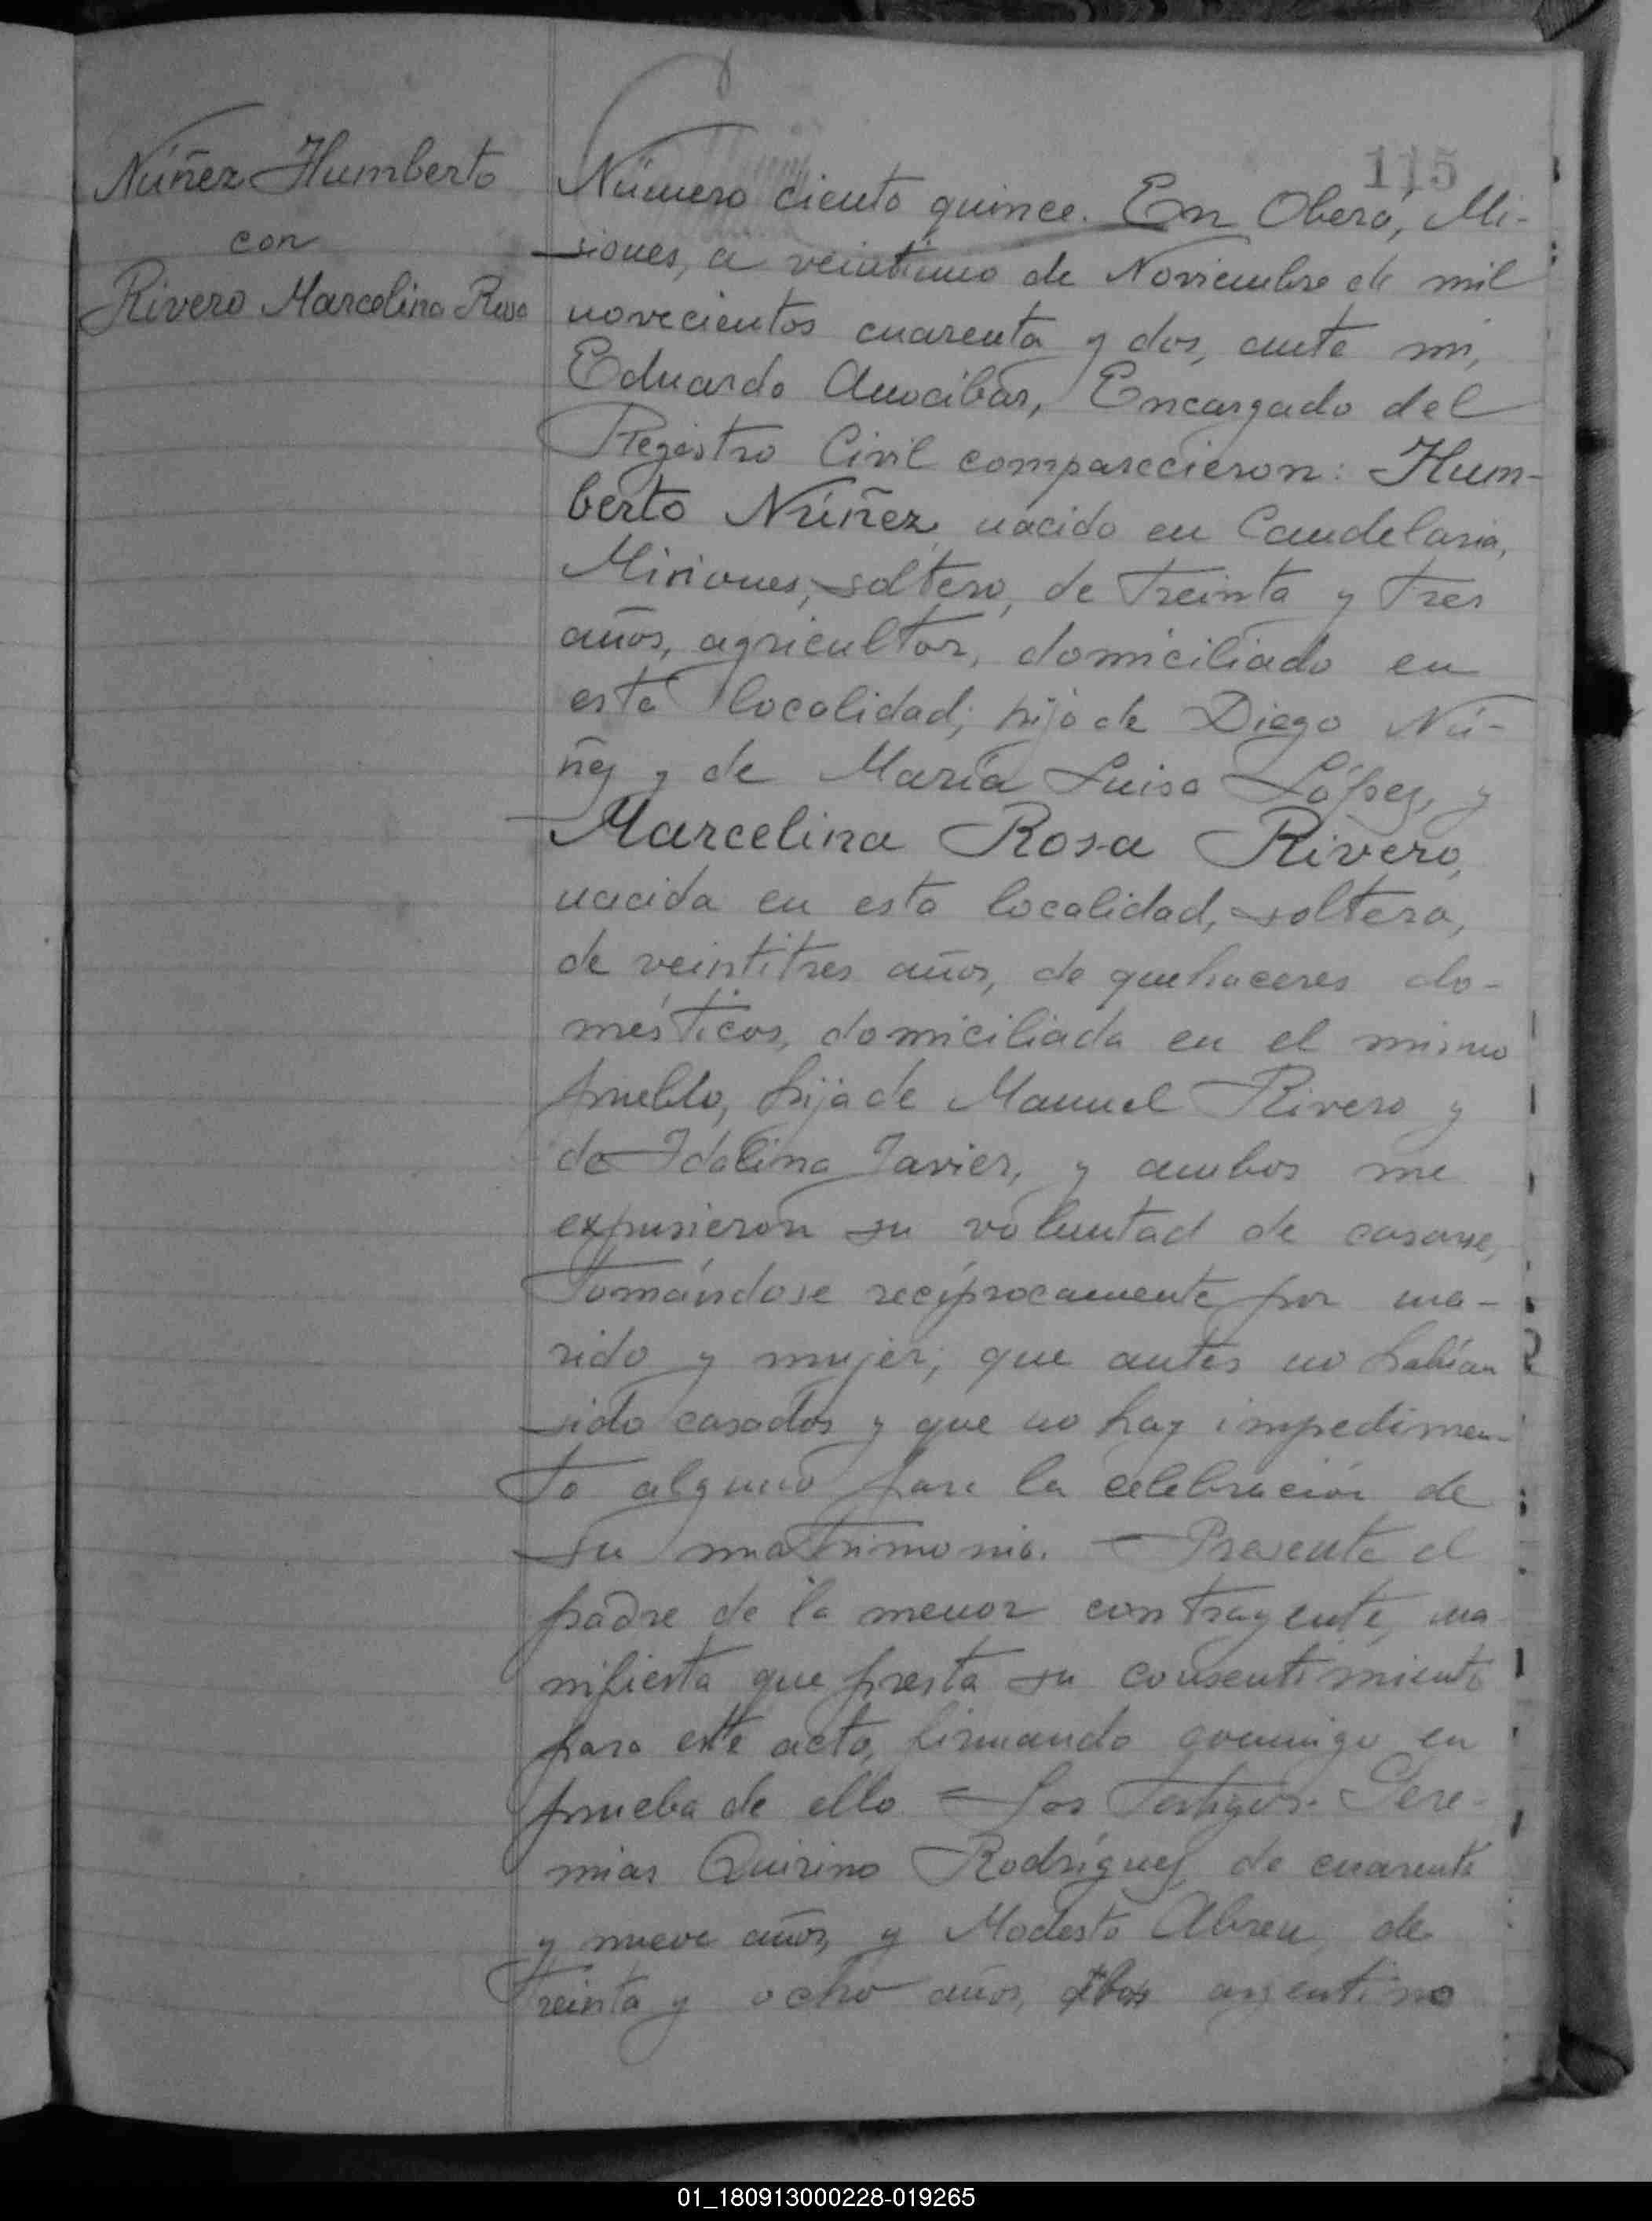 115
Núñez Humberto
con
Rivero Marcelina Rosa
Número ciento quince. En Oberá, Mi-
siones, a veintiuno de Noviembre de mil
novecientos cuarenta y dos, ante mí,
Eduardo Amocibar, Encargado del
Registro Civil comparecieron: Hum-
berto Núñez, nacido en Candelaria,
Misiones, soltero, de treinta y tres
años, agricultor, domiciliado en
esta localidad; hijo de Diego Nú-
ñez y de María Luisa López, y
Marcelina Rosa Rivero,
nacida en esta localidad, soltera,
de veintitres años, de quehaceres do-
mésticos, domiciliada en el mismo
pueblo, hija de Manuel Rivero y
de Idalina Javier, y ambos me
expusieron su voluntad de casarse,
tomándose recíprocamente por ma-
rido y mujer; que antes no habían
sido casados y que no hay impedimen-
to alguno para la celebración de
su matrimonio. — Presente el
padre de la menor contrayente, ma
nifiesta que presta su consentimiento
para este acto, firmando conmigo en
prueba de ello = Los testigos: Jere-
mias Quirino Rodríguez, de cuarenta
y nueve años, y Modesto Abreu, de
treinta y ocho años, argentino
01_180913000228-019265